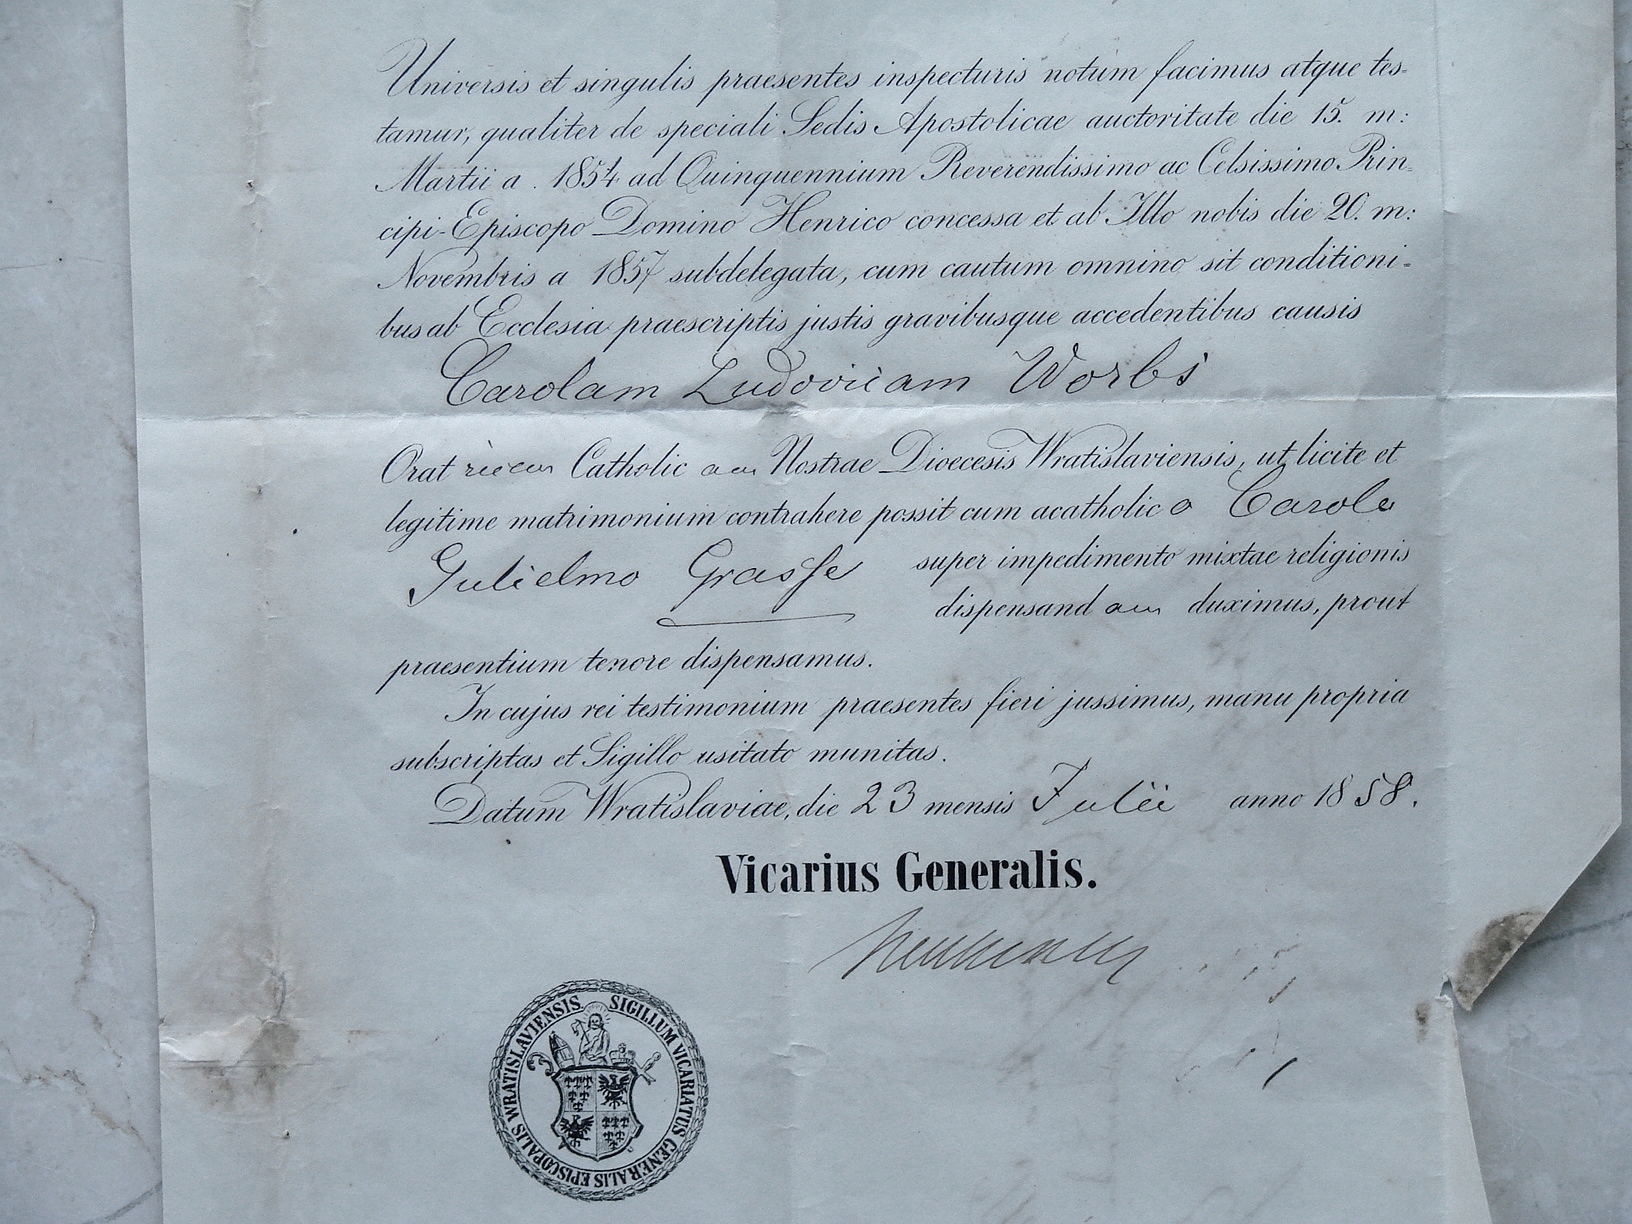 Universis et singulis praesentes inspecturis notum facimus atque tes-
tamur, qualiter de speciali Sedis Apostolicae auctoritate die 15. m:
Martii a. 1854 ad Quinquennium Reverendissimo ac Celsissimo Prin-
cipi-Episcopo Domino Henrico concessa et ab Illo nobis die 20. m:
Novembris a 1857 subdelegata, cum cautum omnino sit conditioni-
bus ab Ecclesia praescriptis justis gravibusque accedentibus causis
Carolam Ludovicam Worbs
Oratricem Catholicam Nostrae Dioecesis Wratislaviensis, ut licite et
legitime matrimonium contrahere possit cum acatholico Carolo
Gulielmo Grasse super impedimento mixtae religionis
dispensandam duximus, prout
praesentium tenore dispensamus.
In cujus rei testimonium praesentes fieri jussimus, manu propria
subscriptas et Sigillo usitato munitas.
Datum Wratislaviae, die 23 mensis Julii anno 1858.
Vicarius Generalis.
SIGILLUM VICARIATUS GENERALIS EPISCOPALIS WRATISLAVIENSIS